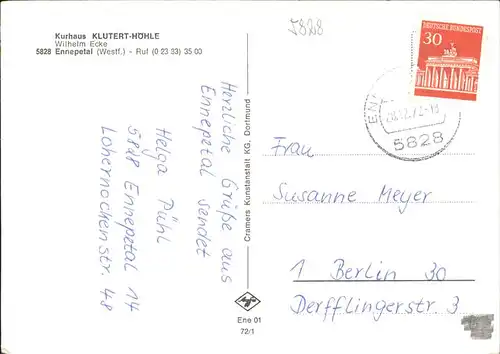 Kurhaus KLUTERT-HÖHLE
Wilhelm Ecke
5828 Ennepetal (Westf.) - Ruf (0 23 33) 35 00
5828
DEUTSCHE BUNDESPOST
30
5828
Herzliche Grüße aus
Ennepetal sendet
Helga Pühl
5828 Ennepetal 14
Lohernockenstr. 48
Cramers Kunstanstalt KG, Dortmund
Frau
Susanne Meyer
1 Berlin 30
Derfflingerstr. 3
Ene 01
72/1